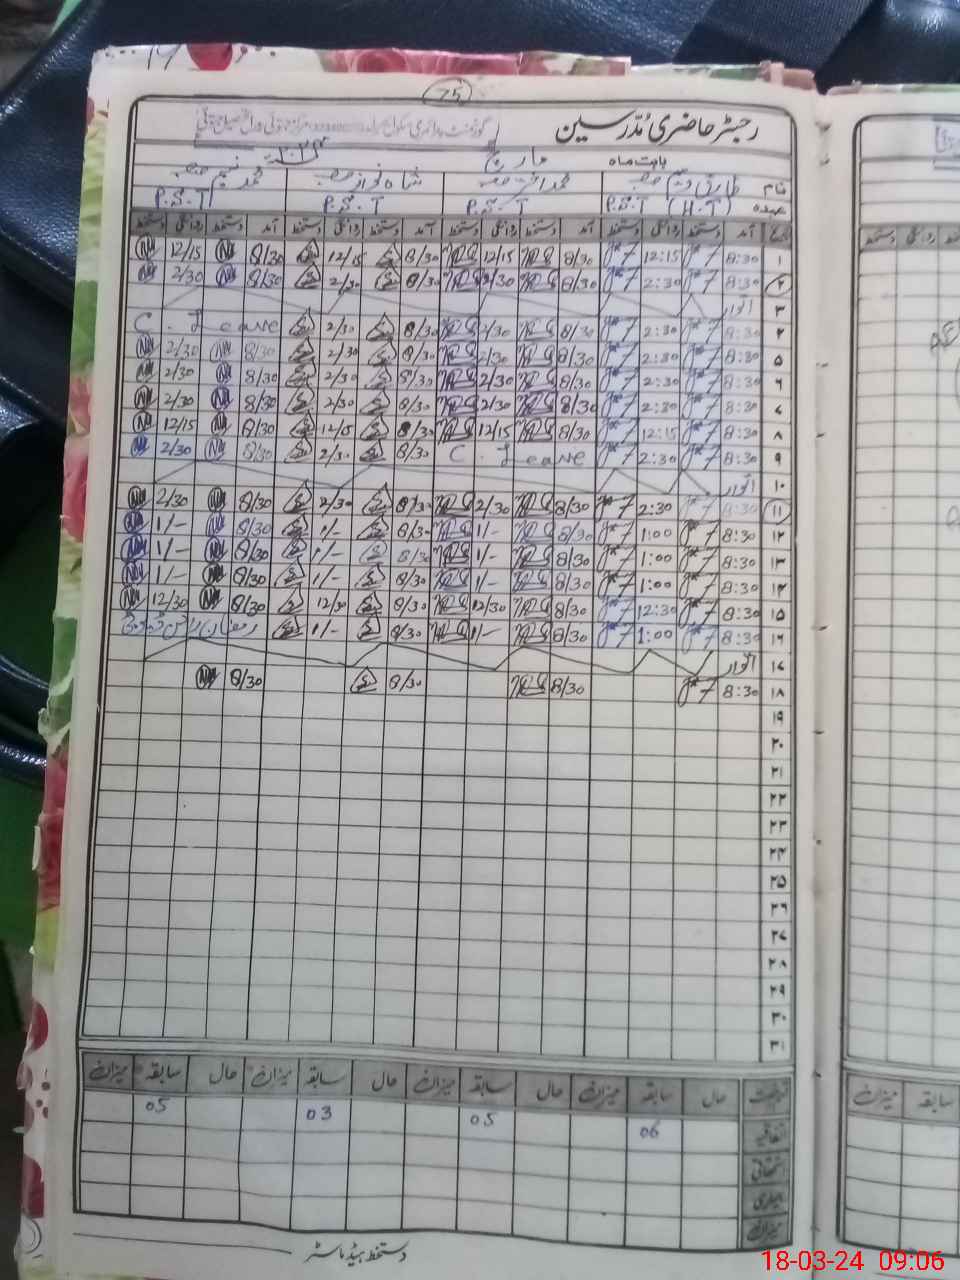 75
رجسٹر حاضری مُدرسین
بابت ماہ مارچ
نام طارق صاحب محمد صاحب شاہ نواز صاحب محمد نسیم صاحب
عہدہ P.S.T (H.T) P.S.T P.S.T P.S.T
تاریخ آمد دستخط روانگی دستخط آمد دستخط روانگی دستخط آمد دستخط روانگی دستخط آمد دستخط روانگی دستخط
۱ 8:30 12:15 8/30 12/15 8/30 12/15 8/30 12/15
۲ 8:30 2:30 8/30 2/30 8/30 2/30 8/30 2/30
۳ اتوار
۴ 8:30 2:30 8/30 2/30 8/30 2/30 C. Leave
۵ 8:30 2:30 8/30 2/30 8/30 2/30 8/30 2/30
۶ 8:30 2:30 8/30 2/30 8/30 2/30 8/30 2/30
۷ 8:30 2:30 8/30 2/30 8/30 2/30 8/30 2/30
۸ 8:30 12:15 8/30 12/15 8/30 12/15 8/30 12/15
۹ 8:30 2:30 C. Leave 8/30 2/30 8/30 2/30
۱۰ اتوار
۱۱ 8:30 2:30 8/30 2/30 8/30 2/30 8/30 2/30
۱۲ 8:30 1:00 8/30 1/- 8/30 1/- 8/30 1/-
۱۳ 8:30 1:00 8/30 1/- 8/30 1/- 8/30 1/-
۱۴ 8:30 1:00 8/30 1/- 8/30 1/- 8/30 1/-
۱۵ 8:30 12:30 8/30 12/30 8/30 12/30 8/30 12/30
۱۶ 8:30 1:00 8/30 1/- 8/30 1/- رمضان راشن ڈیوٹی
۱۷ اتوار
۱۸ 8:30 8/30 8/30 8/30
۱۹
۲۰
۲۱
۲۲
۲۳
۲۴
۲۵
۲۶
۲۷
۲۸
۲۹
۳۰
۳۱
رخصت حال سابقہ میزان حال سابقہ میزان حال سابقہ میزان حال سابقہ میزان
اتفاقیہ 06 05 03 05
استحقاقی
بیماری
میزان
دستخط ہیڈ ماسٹر
18-03-24 09:06